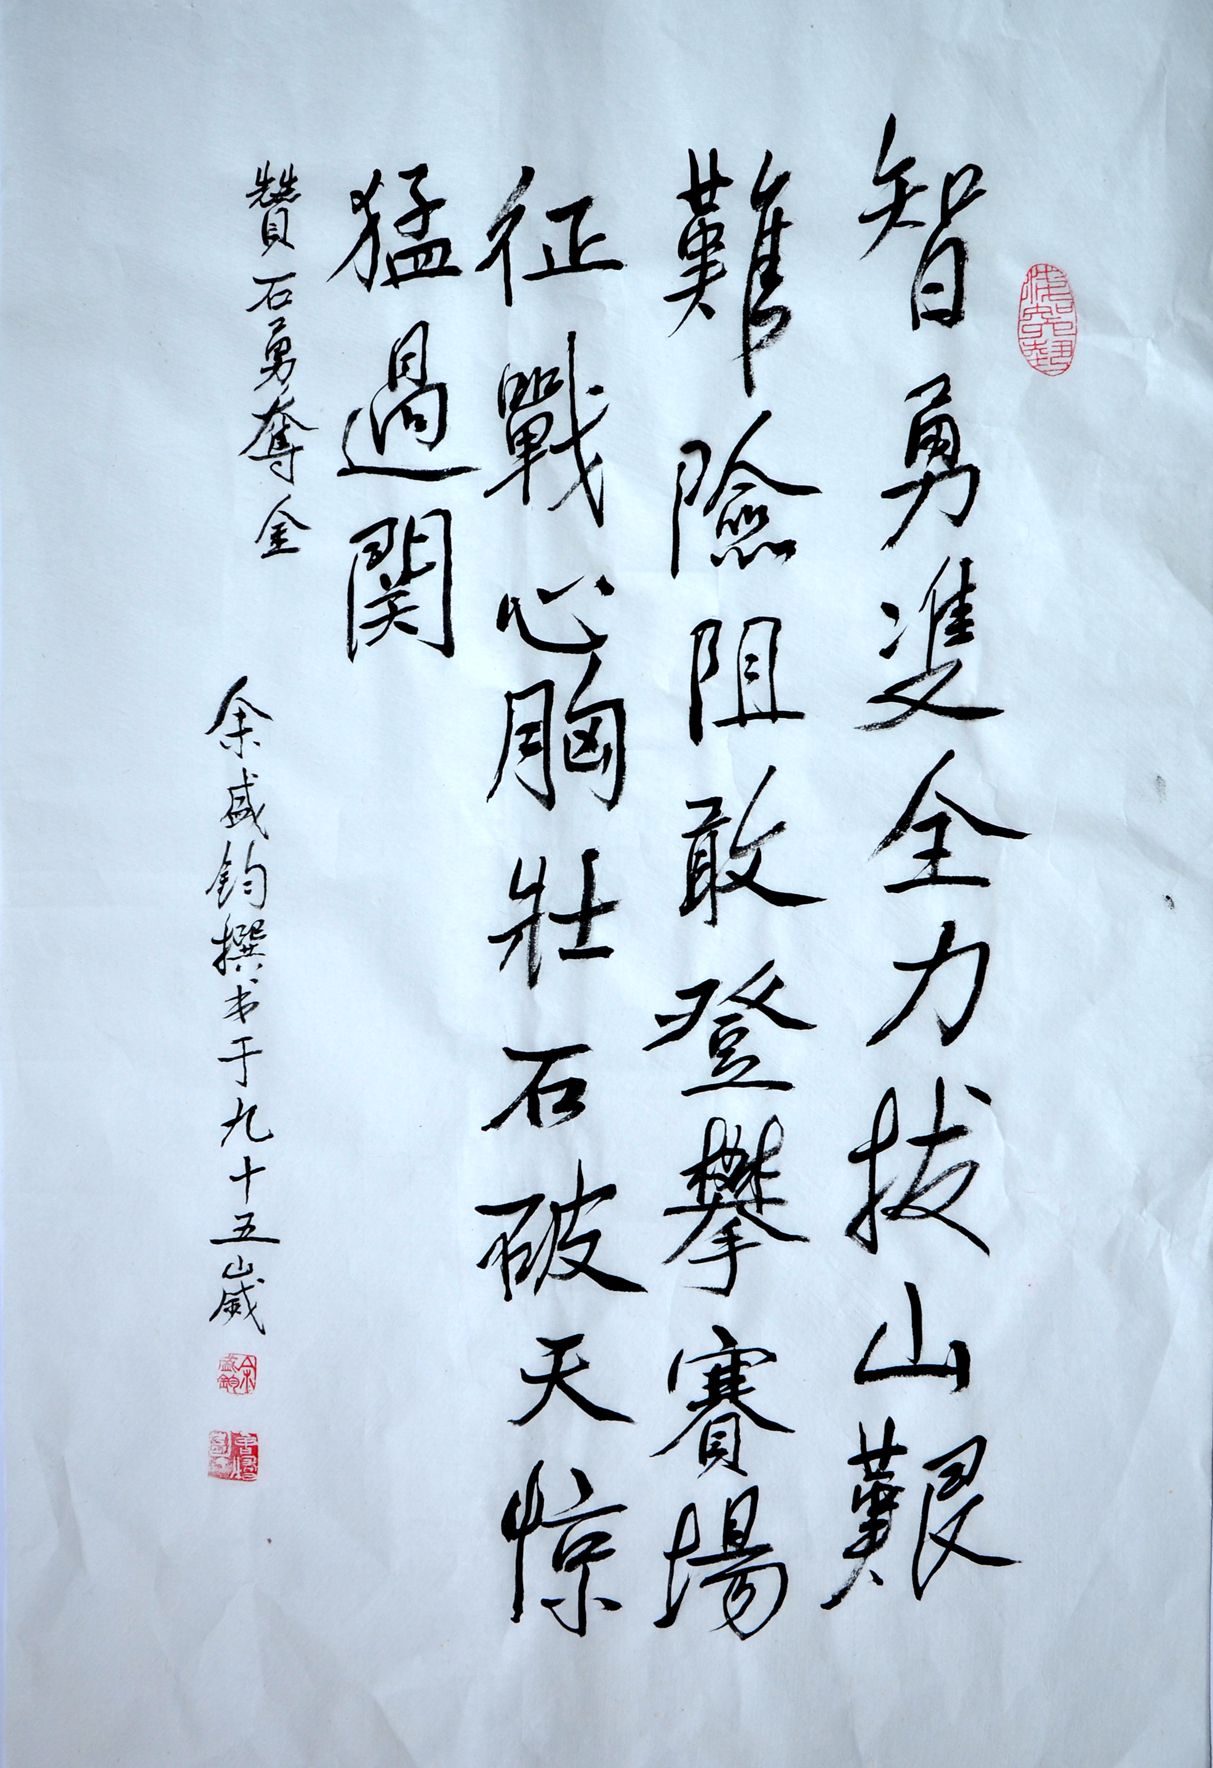 智勇雙全力拔山艱
難險阻敢登攀賽場
征戰心胸壯石破天惊
猛過関
贊石勇奪金
余盛鈞撰书于九十五歲
余盛鈞